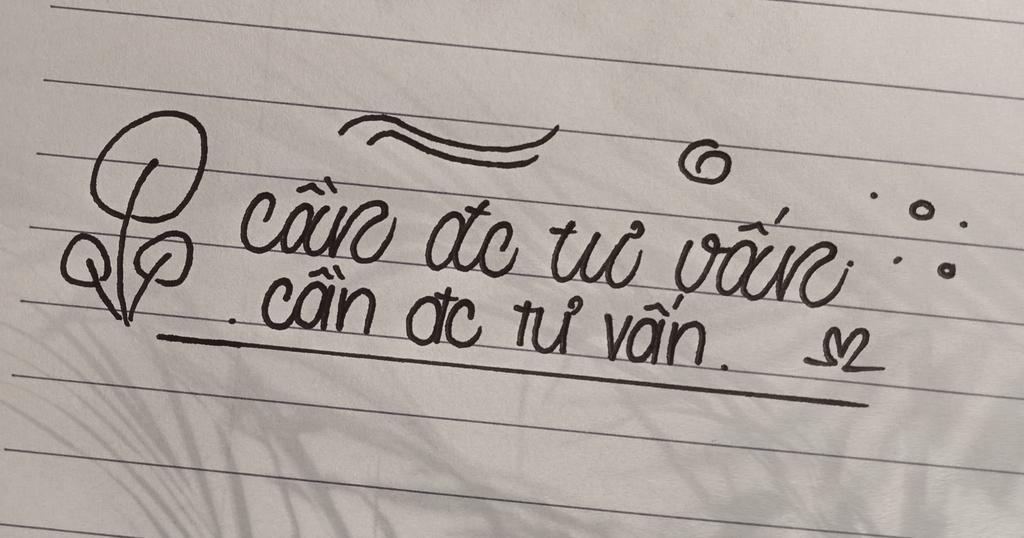 cần đc tư vấn.
. cần đc tư vấn.